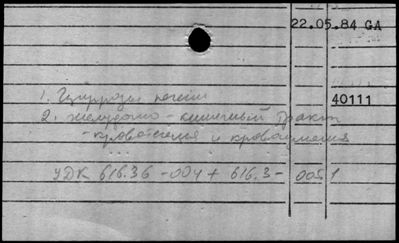 22.05.84 GA
40111
1. Циррозы печени
2. желудочно-кишечный тракт
- кровотечения и кровоизлияния
УДК 616.36-004 + 616.3-005.1